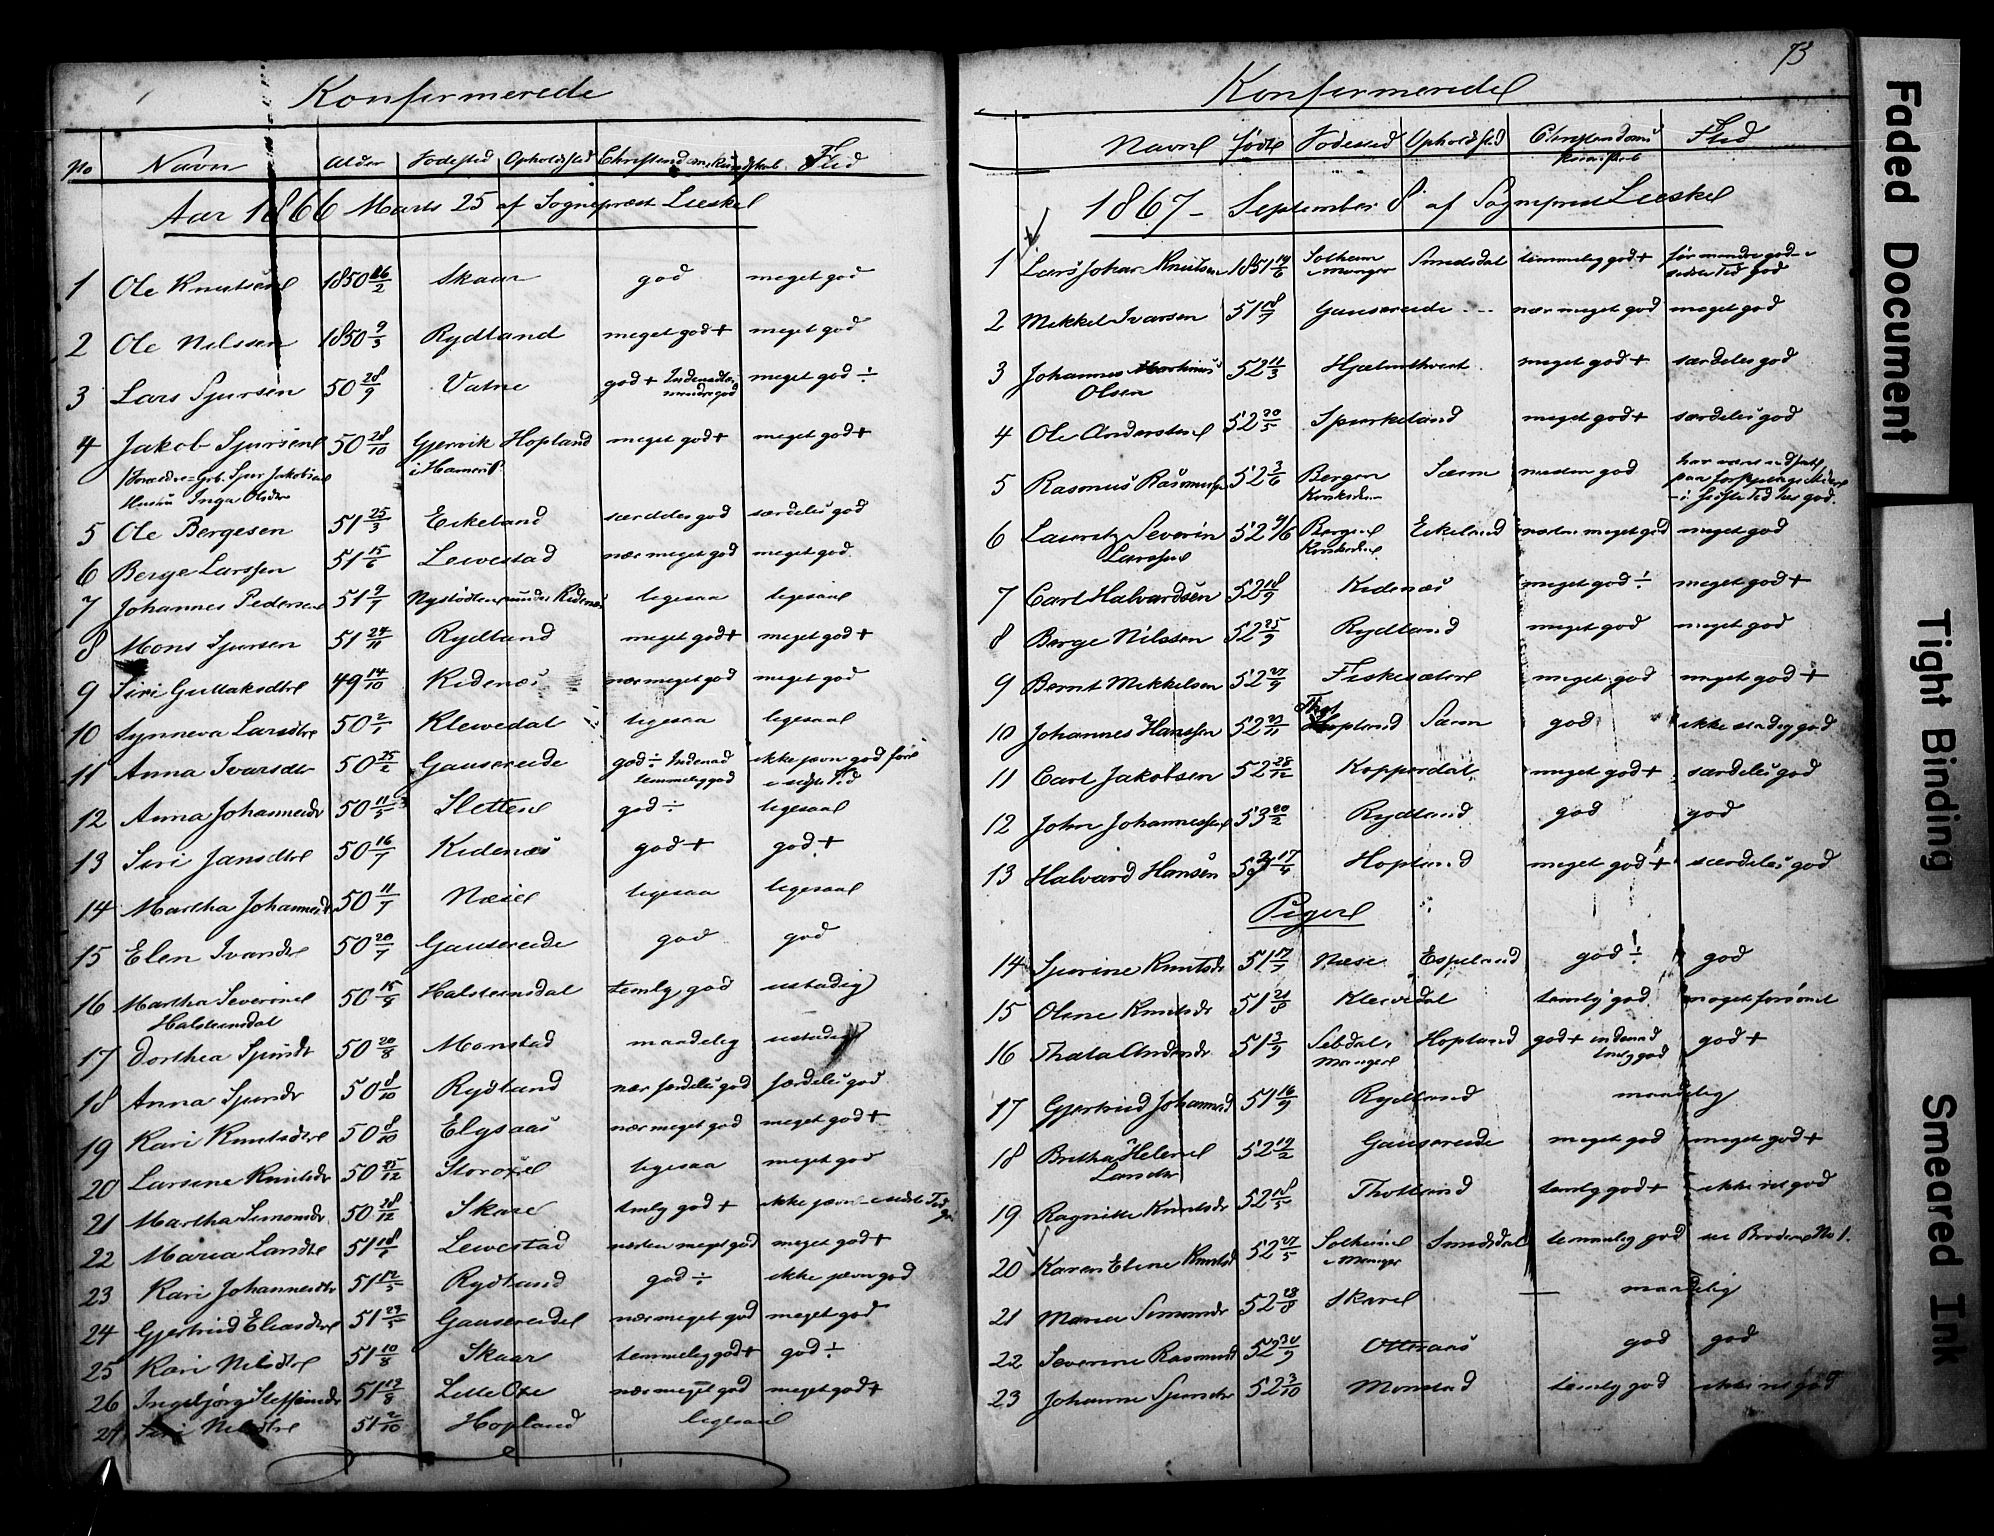 Konfirmerede
No Navn Alder Fødested Opholdsted Christendomskundskab Flid
Aar 1866 Marts 25 af Sognepræst Lieskel
1 Ole Knutsen 1850 16/2 Skaar god meget god
2 Ole Nilssen 1850 9/3 Rydland meget god + meget god
3 Lars Sjursen 50 28/9 Vatne god + Indenad mindre god meget god ÷
4 Jakob Sjursen 50 28/10 Gjervik Hopland meget god + meget god +
i Hamer
Forældre: Grb. Sjur Jakobsen
Hustru Inga Olsdtr
5 Ole Bergesen 51 25/3 Eikeland særdeles god særdeles god
6 Berge Larssen 51 15/6 Leivestad nær meget god meget god
7 Johannes Pedersen 51 9/7 under Kidenæs ligesaa ligesaa
8 Mons Sjursen 51 24/11 Rydland meget god + meget god +
9 Siri Gullaksdtr 49 14/10 Kidenæs nær meget god meget god
10 Synneva Larsdtr 50 2/1 Kleivedal ligesaa ligesaa
11 Anna Ivarsdtr 50 25/2 Gausereide god ÷ Indenad ikke jevn god før
temmelig god
12 Anna Johannesdr 50 11/5 Sletten god ÷ ligesaa
13 Siri Jansdtr 50 16/7 Kidenæs god + god +
14 Martha Johannesd 50 11/7 Næse ligesaa ligesaa
15 Elen Ivarsdtr 50 20/7 Gausereide god god
16 Martha Severine 50 15/8 Halsteinsdal temlg god ustadig
Halsteinsdal
17 Dorthea Sjursdr 50 20/8 Monstad maadelig ustadig
18 Anna Sjursdr 50 8/10 Rydland nær særdeles god særdeles god
19 Kari Knutsdtr 50 8/10 Elgsaas nær meget god meget god +
20 Larsine Knutsdr 50 25/12 Storoxe ligesaa meget god
21 Martha Simonsdr 50 28/12 Skare temlg god + ikke jevn
22 Maria Larsdtr 51 18/1 Leivestad næsten meget god meget god +
23 Kari Johannesdtr 51 12/5 Rydland god ÷ ikke jevn god
24 Gjertrud Eliasdtr 51 29/5 Gausereide nær meget god meget god
25 Kari Nilsdtr 51 10/8 Skaar temmelig god + god ÷
26 Ingebjørg Steffensdr 51 13/8 Lille Oxe nær meget god meget god +
27 Siri Nilsdtr 51 2/10 Hopland ligesaa
73
Konfirmerede
Navne Fødte Fødested Opholdsted Christendoms Flid
kundskab
1867 - September 8 af Sognepræst Lieskel
1 Lars Johan Knutsen 1851 19/6 Solheim Smedsdal temmelig god + før mindre god
i Manger sidste Tid god
2 Mikkel Ivarsen 51 18/7 Gausereide nær meget god meget god
3 Johannes Martinus 52 11/3 meget god + særdeles god
Olsen
4 Ole Andersen 52 20/5 Spurkeland meget god + særdeles god
5 Rasmus Rasmussen 52 3/6 Bergen Sæm næsten god
6 Lauritz Severin 52 9/6 Bergen Eikeland næsten meget god meget god
Larssen
7 Carl Halvardsen 52 18/9 Kidenæs meget god ÷ meget god +
8 Berge Nilssen 52 25/9 Rydland meget god meget god
9 Bernt Mikkelsen 52 27/9 Fiskesætre meget god meget god +
10 Johannes Hanssen 52 27/11 Hopland Sæm god ikke stadig god
11 Carl Jakobsen 52 28/12 Kopperdal meget god + særdeles god
12 John Johannessen 53 20/2 Rydland god god
13 Halvard Hansen 17/4 Hopland meget god + særdeles god
Piger
14 Sjurine Knutsdr 51 17/7 Næse Espeland god ÷ god
15 Oline Knutsdr 51 21/8 Kleivedal temlg god meget forsømt
16 Thala Andersdr 51 3/9 Sebdal Hopland god + indenad god +
Manger temlg god
17 Gjertrud Johannesd 51 16/9 Rydland maadelig
18 Britha Helene 52 19/2 Gausereide meget god meget god +
Larsdtr
19 Ragnilde Knutsdr 52 18/5 Tholland temlg god + ikke ret god
20 Karen Eline Knutsd 52 27/5 Solheim Smedsdal temmelig god se Broderen No 1.
i Manger
21 Maria Simonsdr 52 28/8 Skare maadelig
22 Severine Rasmusd 52 30/9 Otteraas god god
23 Johanne Sjursdtr 52 3/10 Monstad temlg god ikke ret god
Faded Document
Tight Binding
Smeared Ink